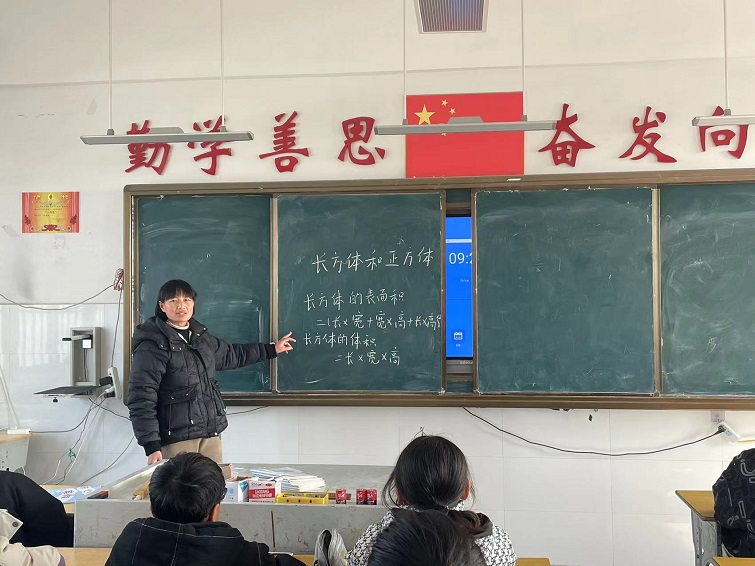 勤学善思
奋发向
09:2
长方体和正方体
长方体的表面积
=(长×宽+宽×高+长×高)
长方体的体积
=长×宽×高